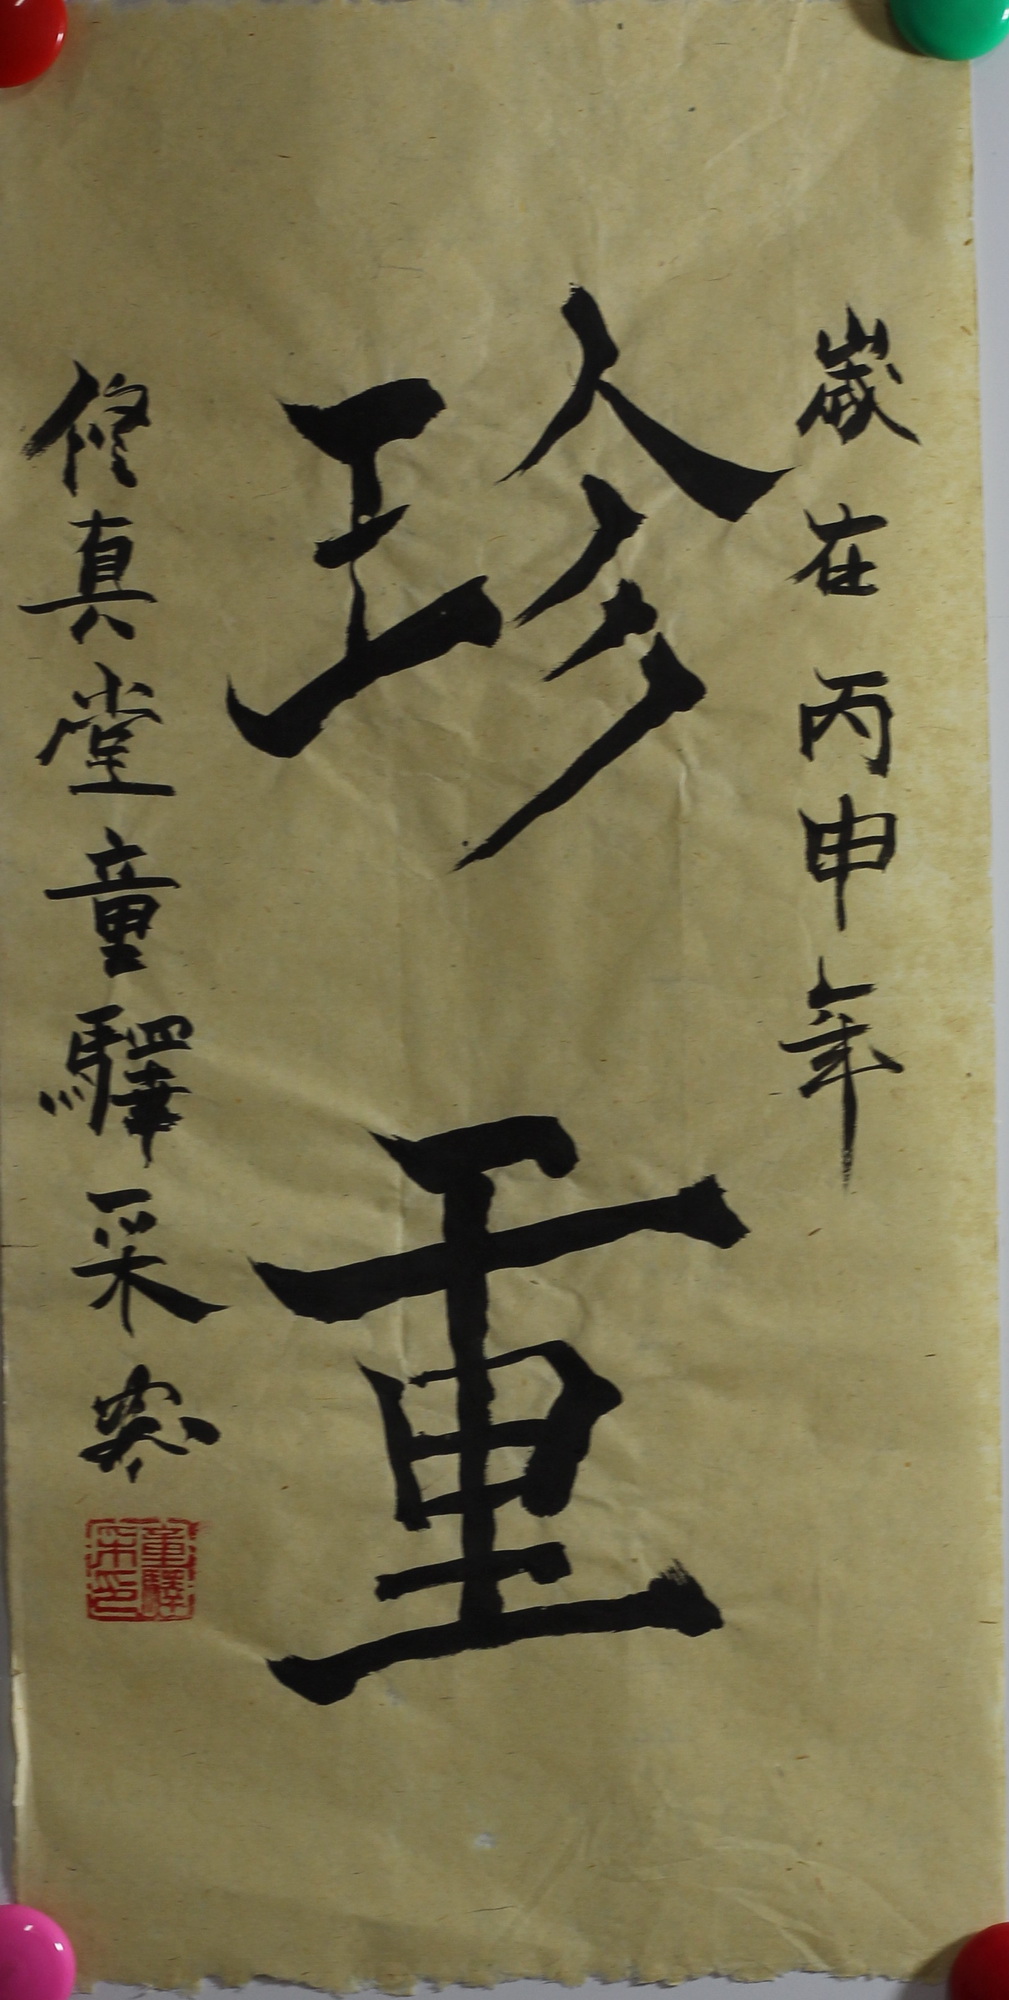 歲在丙申年
珍重
修真堂童驛采
童驛采印